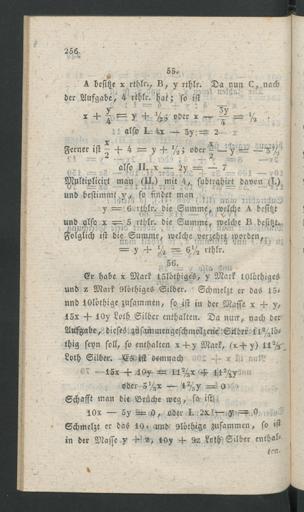 256
55.
A besitze x rthlr., B, y rthlr. Da nun C, nach
der Aufgabe, 4 rthlr. hat; so ist
x + y/4 = y + 1/2; oder x − 3y/4 = 1/2
also I. 4x − 3y = 2
Ferner ist x/2 + 4 = y + 1/2; oder
also II. x − 2y = − 7
Multiplicirt man (II.) mit 4, subtrahirt davon (I.)
und bestimmt y, so findet man
y = 6 rthlr. die Summe, welche A besitzt
und also x = 5 rthlr. die Summe, welche B besitzt.
Folglich ist die Summe, welche verzehrt worden,
= y + 1/2 = 6 1/2 rthlr.
56.
Er habe x Mark 15löthiges, y Mark 10löthiges
und z Mark 9löthiges Silber. Schmelzt er das 15-
und 10löthige zusammen, so ist in der Masse x + y,
15x + 10y Loth Silber enthalten. Da nun, nach der
Aufgabe, dieses zusammengeschmolzene Silber 11 2/3 lö-
thig seyn soll, so enthalten x + y Mark, (x + y) 11 2/3
Loth Silber. Es ist demnach
15x + 10y = 11 2/3 x + 11 2/3 y
oder 3 1/3 x − 1 2/3 y = 0
Schafft man die Brüche weg, so ist:
10x − 5y = 0, oder I. 2x − y = 0
Schmelzt er das 10- und 9löthige zusammen, so ist
in der Masse y + z, 10y + 9z Loth Silber enthal-
ten.